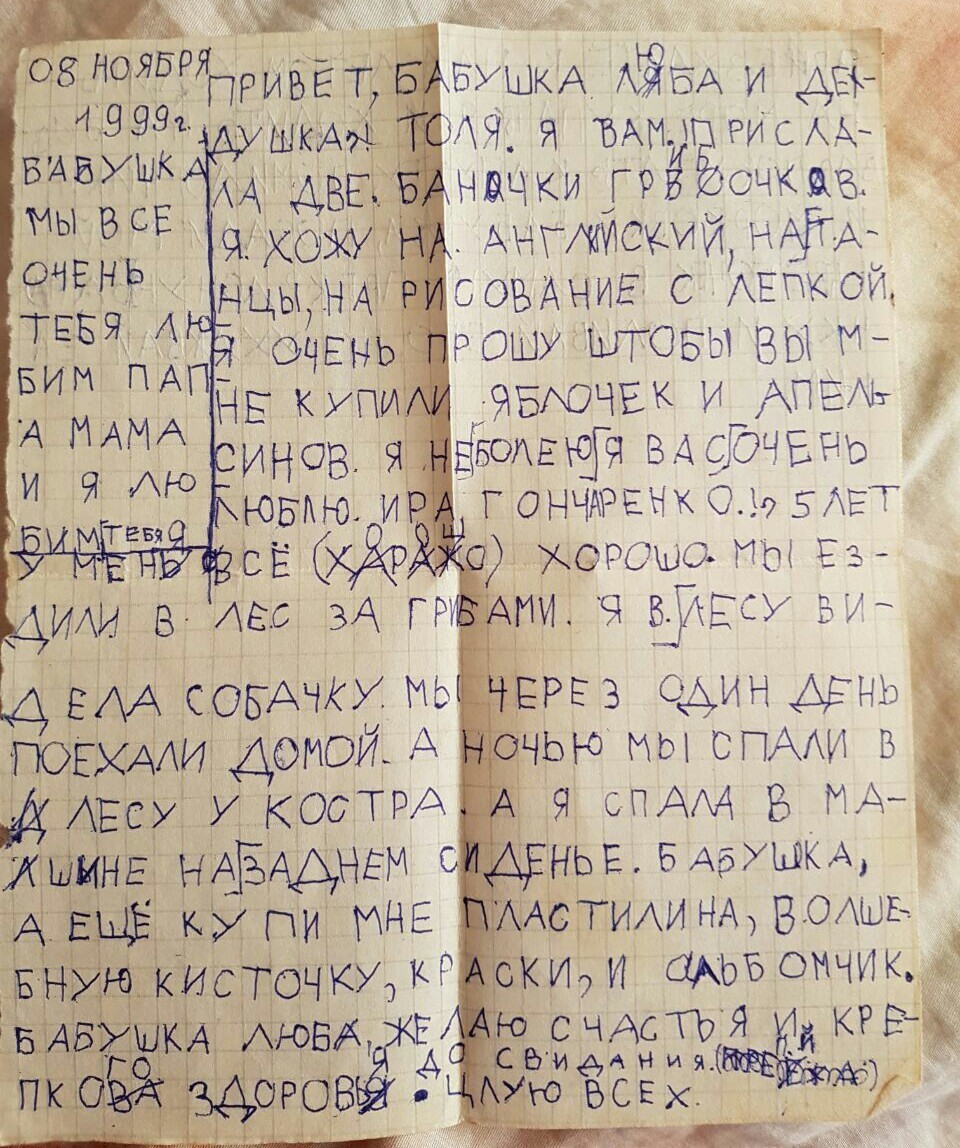 08 НОЯБРЯ
1999г.
БАБУШКА
МЫ ВСЕ
ОЧЕНЬ
ТЕБЯ ЛЮ-
БИМ ПАП-
А МАМА
И Я ЛЮ
БИМ ТЕБЯ
ПРИВЕТ, БАБУШКА ЛЮБА И ДЕ-
ДУШКА ТОЛЯ. Я ВАМ ПРИСЛА-
ЛА ДВЕ. БАНОЧКИ ГРИБОЧКОВ.
Я ХОЖУ НА АНГЛИЙСКИЙ, НА ТА-
НЦЫ, НА РИСОВАНИЕ С ЛЕПКОЙ.
Я ОЧЕНЬ ПРОШУ ШТОБЫ ВЫ М-
НЕ КУПИЛИ ЯБЛОЧЕК И АПЕЛЬ-
СИНОВ. Я НЕ БОЛЕЮ Я ВАС ОЧЕНЬ
ЛЮБЛЮ. ИРА ГОНЧАРЕНКО.!, 5 ЛЕТ
У МЕНЯ ВСЁ (ХАРАЖО) ХОРОШО. МЫ ЕЗ-
ДИЛИ В ЛЕС ЗА ГРИБАМИ. Я В. ЛЕСУ ВИ-
ДЕЛА СОБАЧКУ. МЫ ЧЕРЕЗ ОДИН ДЕНЬ
ПОЕХАЛИ ДОМОЙ. А НОЧЬЮ МЫ СПАЛИ В
ЛЕСУ У КОСТРА. А Я СПАЛА В МА-
ШИНЕ НА ЗАДНЕМ СИДЕНЬЕ. БАБУШКА,
А ЕЩЁ КУПИ МНЕ ПЛАСТИЛИНА, ВОЛШЕ-
БНУЮ КИСТОЧКУ, КРАСКИ, И АЛЬБОМЧИК.
БАБУШКА ЛЮБА, ЖЕЛАЮ СЧАСТЬЯ И КРЕ-
ПКОГО ЗДОРОВЬЯ. ДО СВИДАНИЯ.
ЦЛУЮ ВСЕХ.